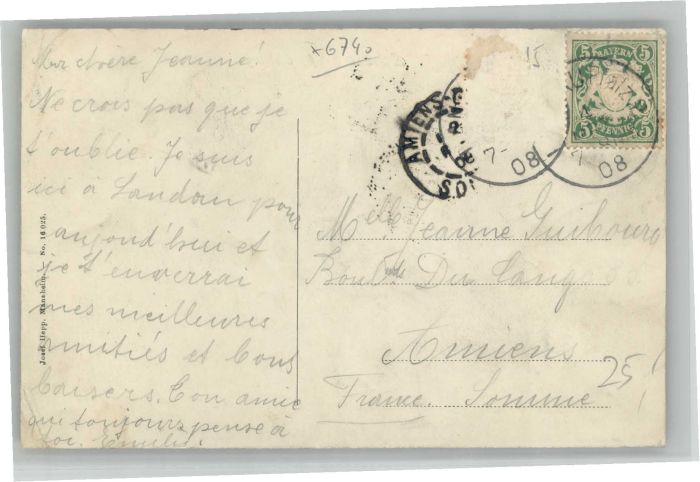 Ma chère Jeanne!
Ne crois pas que je
t'oublie. Je suis
ici à Landau pour
aujourd'hui et
je t'enverrai
mes meilleures
amitiés et bons
baisers. Ton amie
qui toujours pense à
toi. Emilie.
Josef Hepp, Mannheim. — No. 16 025.
x6740
15
AMIENS
08
7-
08
7
08
BAYERN
5 5
5 5
PFENNIG
Melle Jeanne Guibourg
Boulvde Du Cange
Amiens
France. Somme
25